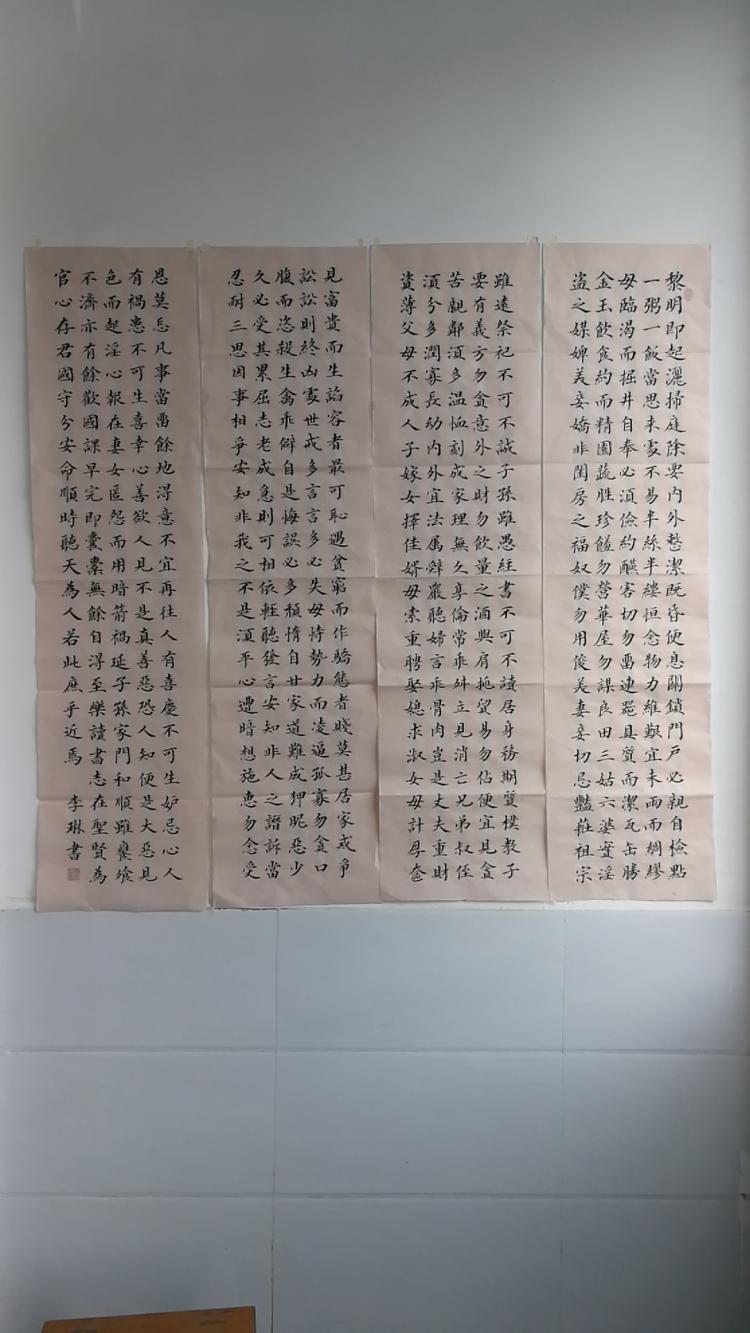 黎明即起灑掃庭除要內外整潔既昏便息關鎖門戶必親自檢點
一粥一飯當思來處不易半絲半縷恒念物力維艱宜未雨而綢繆
毋臨渴而掘井自奉必須儉約醼客切勿留連器具質而潔瓦缶勝
金玉飲食約而精園蔬勝珍饈勿營華屋勿謀良田三姑六婆實淫
盜之媒婢美妾嬌非閨房之福奴僕勿用俊美妻妾切忌豔莊祖宗
雖遠祭祀不可不誠子孫雖愚經書不可不讀居身務期質樸教子
要有義方勿貪意外之財勿飲量之酒與肩挑貿易勿佔便宜見貪
苦親鄰須多温恤刻成家理無久享倫常乖舛立見消亡兄弟叔侄
須分多潤寡長幼內外宜法属辭嚴聽婦言乖骨肉豈是丈夫重財
資薄父毋不成人子嫁女擇佳婿毋索重聘娶媳求淑女毋計厚奩
見富貴而生諂容者最可恥遇貧窮而作驕態者賤莫甚居家戒爭
訟訟則終凶處世戒多言言多必失毋恃勢力而凌逼孤寡勿貪口
腹而恣殺生禽乖僻自是悔誤必多頹惰自甘家道難成狎昵惡少
久必受其累屈志老成急則可相依輕聽發言安知非人之譖訴當
忍耐三思因事相爭安知非我之不是須平心遭暗想施惠勿念受
恩莫忘凡事當留餘地得意不宜再往人有喜慶不可生妒忌心人
有禍患不可生喜幸心善欲人見不是真善惡恐人知便是大惡見
色而起淫心報在妻女匿怨而用暗箭禍延子孫家門和順雖饔飧
不濟亦有餘歡國課早完即囊橐無餘自得至樂讀書志在聖賢為
官心存君國守分安命順時聽天為人若此庶乎近焉 李琳書